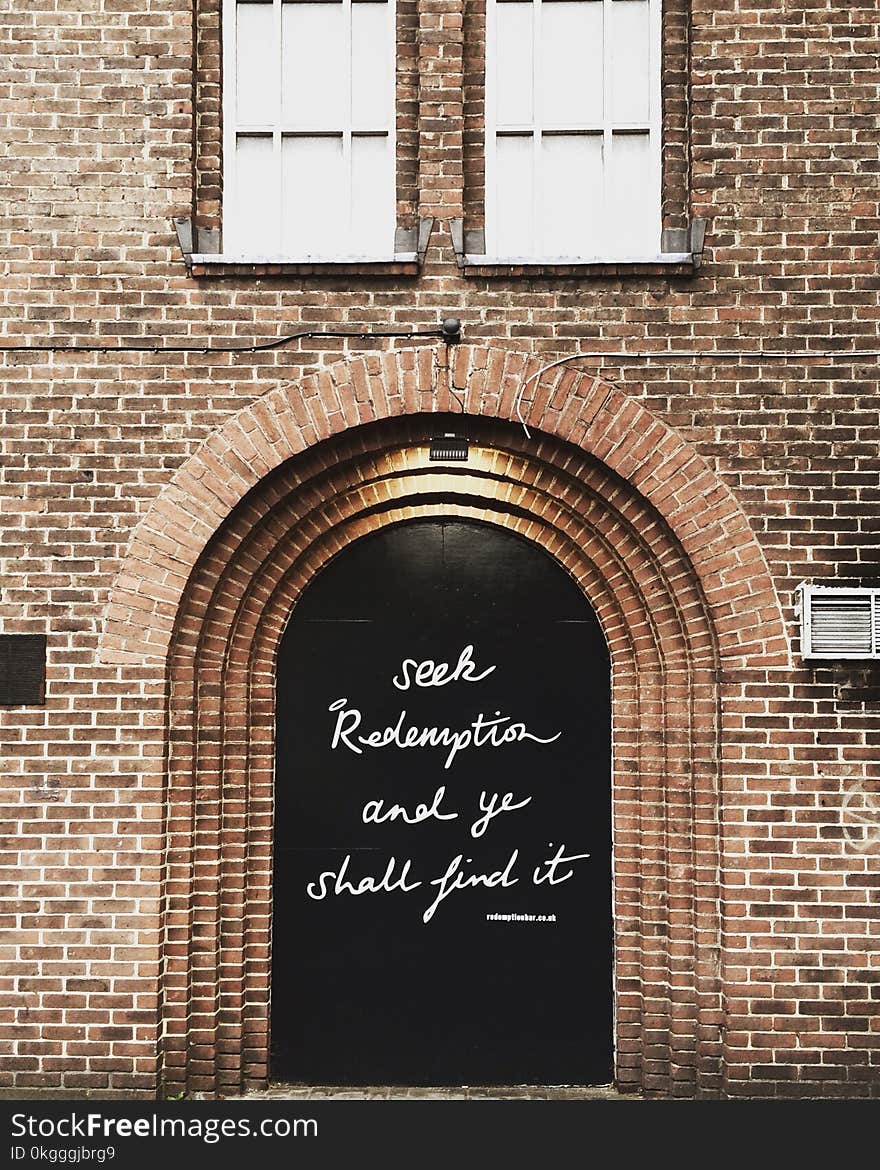 seek
Redemption
and ye
shall find it
redemptionbar.co.uk
StockFreeImages.com
ID 0kgggjbrg9